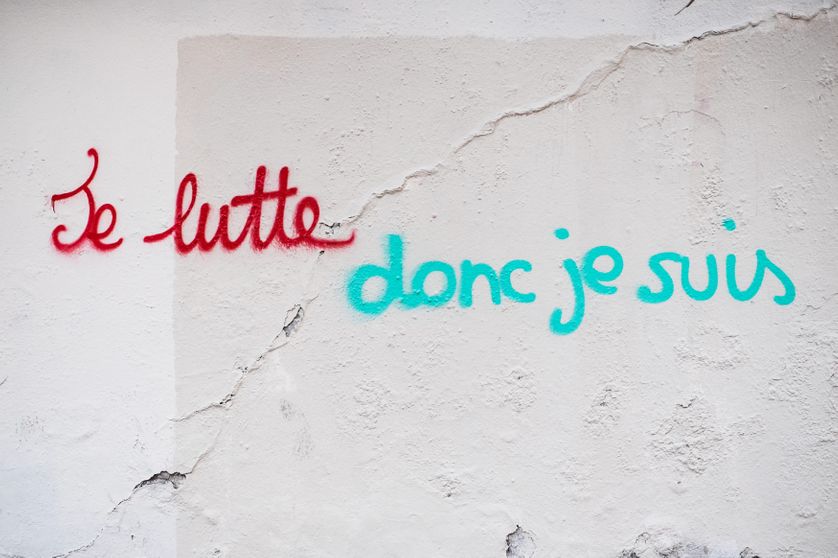 Je lutte
donc je suis